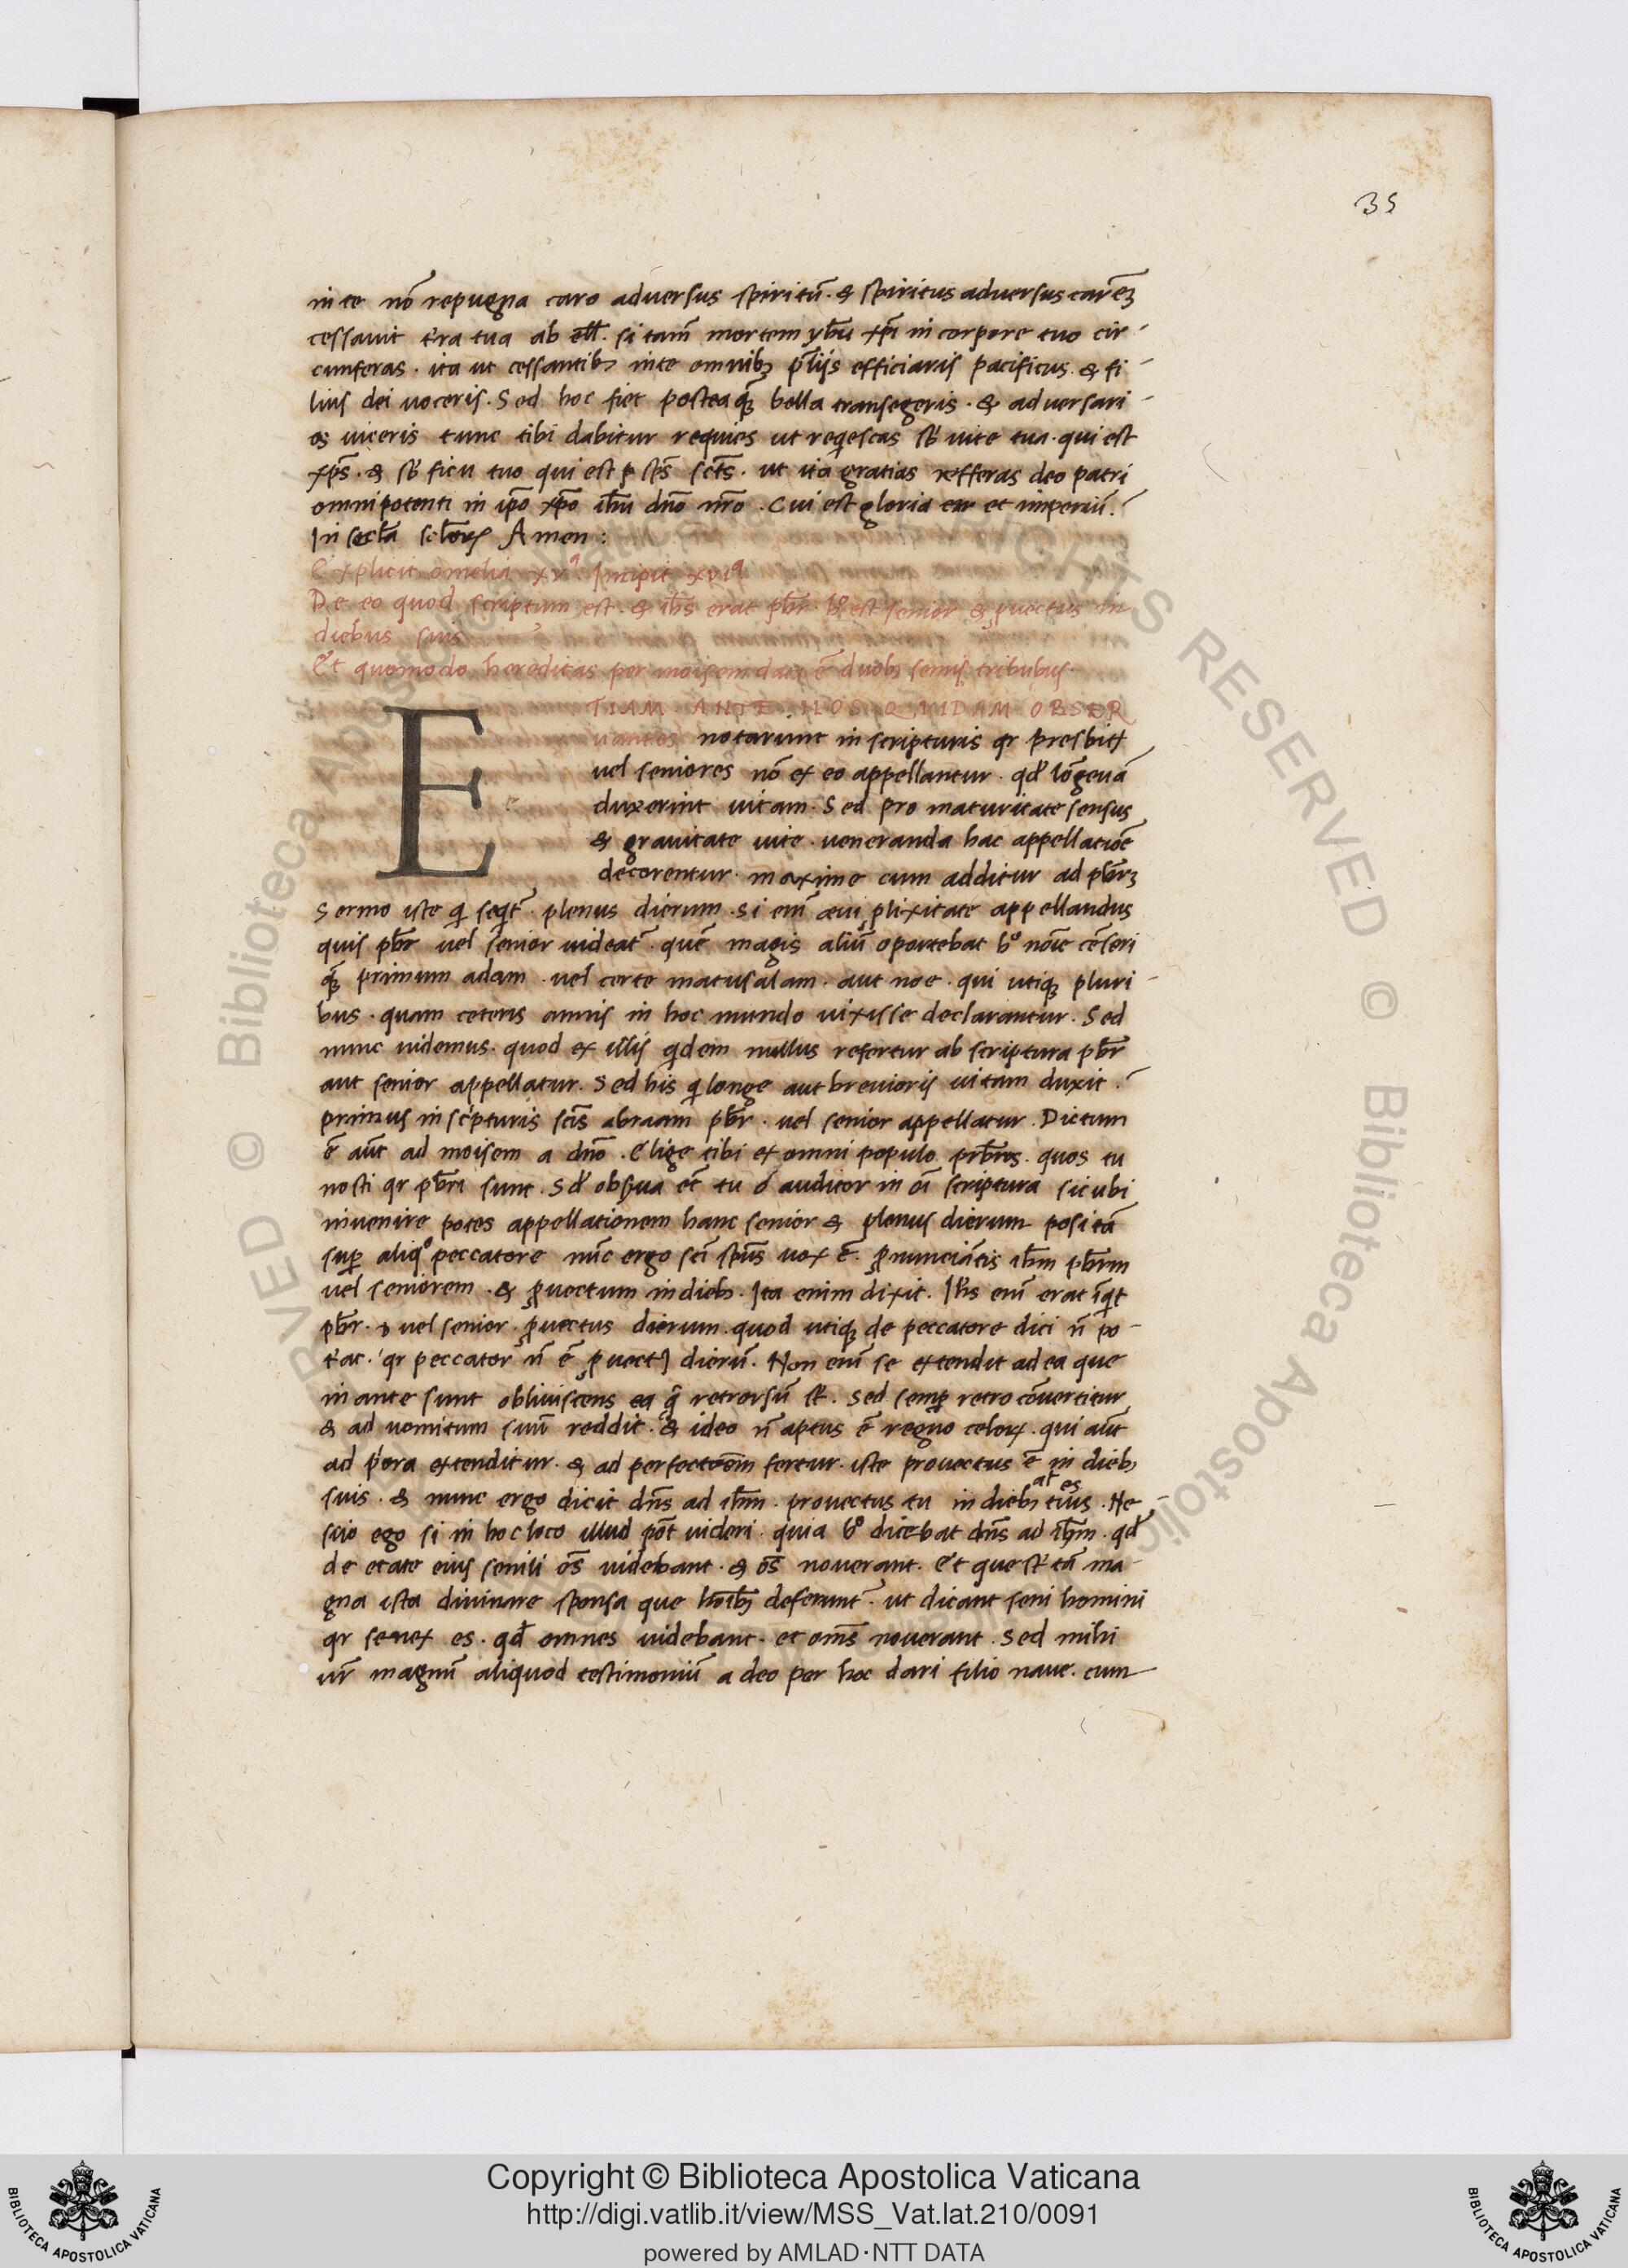 35
in te nō repugna caro adversus spiritū. & spiritus adversus carnē
cessavit t'ra tua ab si tam̄ mortem yhū xp̄i in corpore tuo cir-
cumferas. ita ut cessantib; in te omnib; p̄liis efficiaris pacificus. & fi-
lius dei voceris. Sed hoc fiet postea q̄ bella transegeris. & adversari-
os viceris tunc tibi dabitur requies ut reqiescas sb' vite tua. qui est
xp̄s. & sb' ficu tuo qui est sp̄s sct̄s. ut ita gratias refferas deo patri
omnipotenti in ip̄o xp̄o ih̄u dn̄o nr̄o. Cui est gloria et imperiū.
In secl̄a Amen:
Explicit omelia xvª. Incipit xviª
De eo quod scriptum est. & ih̄s erat pb̄r. h° est senior & ꝓvectus in
diebus suis
Et quomodo hereditas per moisem data ē duob; semis tribubus.
E TIAM ANTE NOS QUIDAM OBSER
vantes notarunt in scripturis qr presbit'
vel seniores nō ex eo appellantur. qd' lōgevā
duxerint vitam. Sed pro maturitate sensus
& gravitate vite. veneranda hac appellatiōē
decorentur. maxime cum additur ad
Sermo iste qi seqit̄. plenus dierum. Si em̄ aevi ꝓlixitate appellandus
quis pb̄r vel senior videat̄. quē magis aliū oportebat h° noīe cēseri
q̄ primum adam. vel certe matusalam. aut noe. qui utiq; pluri-
bus. quam ceteris annis in hoc mundo vixisse declarantur. Sed
nunc videmus. quod ex ill̄is qidem nullus refertur ab scriptura pb̄r
aut senior appellatur. Sed his qi longe aut brevioris vitam duxit.
primus in sc'ipturis sct̄is abraam pb̄r. vel senior appellatur. Dictum
ē aūt ad moisem a dn̄o. Elige tibi ex omni populo prb̄ros. quos tu
nosti qr pb̄ri sunt. Sd' obs̄va et̄ tu o auditor in oī scriptura sicubi
invenire potes appellationem hanc senior & plenus dierum positā
suꝑ aliq° peccatore nūc ergo sc̄i sp̄us vox ē. ꝓnunciātis ih̄m pb̄rm
vel seniorem. & ꝓvectum in dieb;. Ita enim dixit. Ih̄s em̄ erat īqit
pb̄r. vel senior. ꝓvectus dierum. quod utiq; de peccatore dici n̄ po-
t'at. qr peccator n̄ ē ꝓvect9 dierū. Non em̄ se extendit ad ea que
in ante sunt obliviscens ea q̄ retrorsū st'. Sed semꝑ retro cōvertitur
& ad vomitum suū reddit. & ideo n̄ aptus ē regno celoꝝ. qui aūt
ad p'ora extenditur. & ad fertur. iste provectus ē in dieb;
suis. & nunc ergo dicit dn̄s ad ih̄m. provectus tu in dieb; tuis. Ne-
scio ego si in hoc loco illud pōt videri. quia h° dicebat dn̄s ad ih̄m. qd'
de etate eius senili ōs videbant. & ōs noverant. Et que st' tā ma-
gna ista divinare sponsa que hoīb; deferunt̄. ut dicant seni homini
qr senex es. qd̄ omnes videbant. et om̄s noverant. Sed mihi
vr̄ magnū aliquod testimoniū a deo per hoc dari filio nave. cum
Copyright © Biblioteca Apostolica Vaticana
http://digi.vatlib.it/view/MSS_Vat.lat.210/0091
powered by AMLAD·NTT DATA
BIBLIOTECA APOSTOLICA VATICANA
BIBLIOTECA APOSTOLICA VATICANA